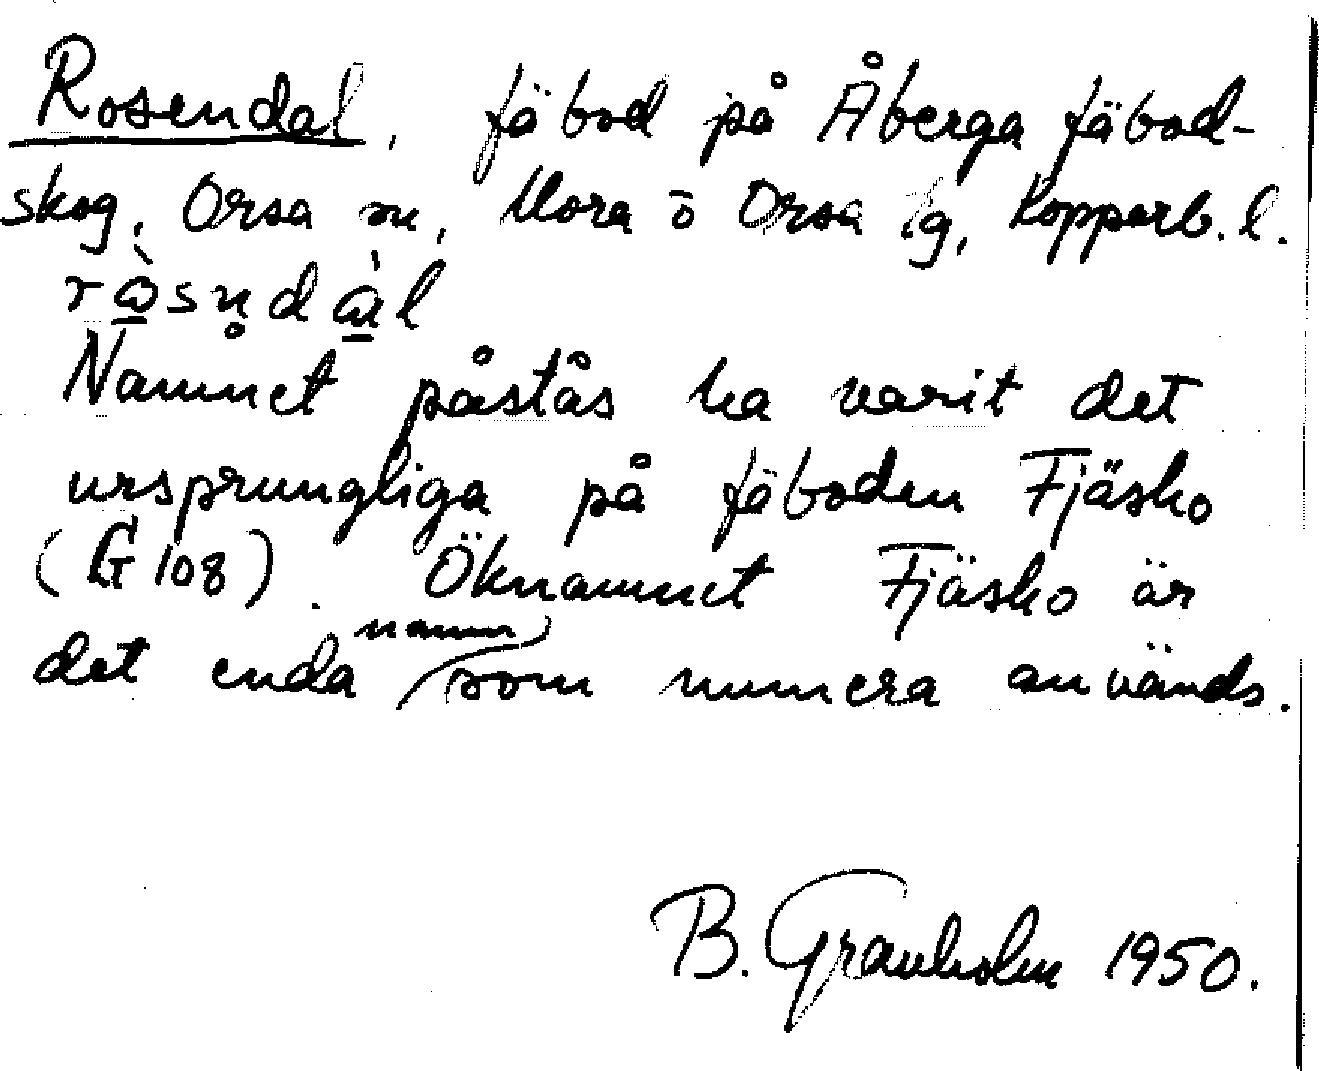 Rosendal, fäbod på Åberga fäbod-
skog, Orsa sn, Mora o Orsa tg, Kopparb. l.
Namnet påstås ha varit det
ursprungliga på fäboden Fjäsko
(G 108). Öknamnet Fjäsko är
det enda namn som numera används.
B. Granholm 1950.